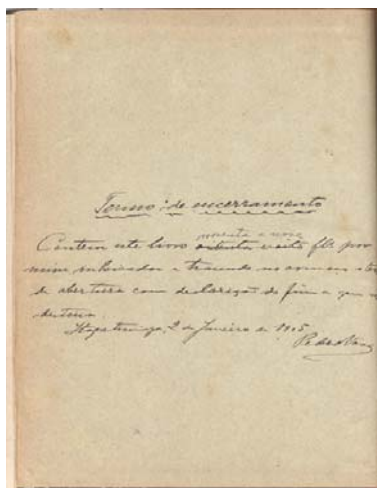 Termo de encerramento
noventa e nove
Contem este livro oitenta e oito fls. por
mim rubricadas e trazendo no
de abertura com declaração do fim a que se
destina.
Itapetininga, 2 de Janeiro de 1905
Pedro